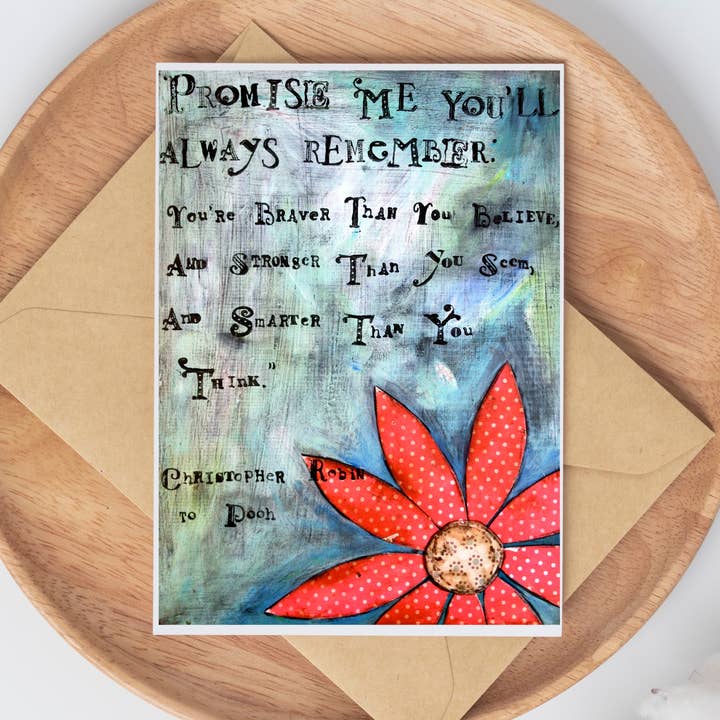 "PROMISE ME YOU'LL
ALWAYS REMEMBER:
You're Braver Than You Believe,
And Stronger Than You Seem,
And Smarter Than You
Think."
Christopher Robin
to Pooh